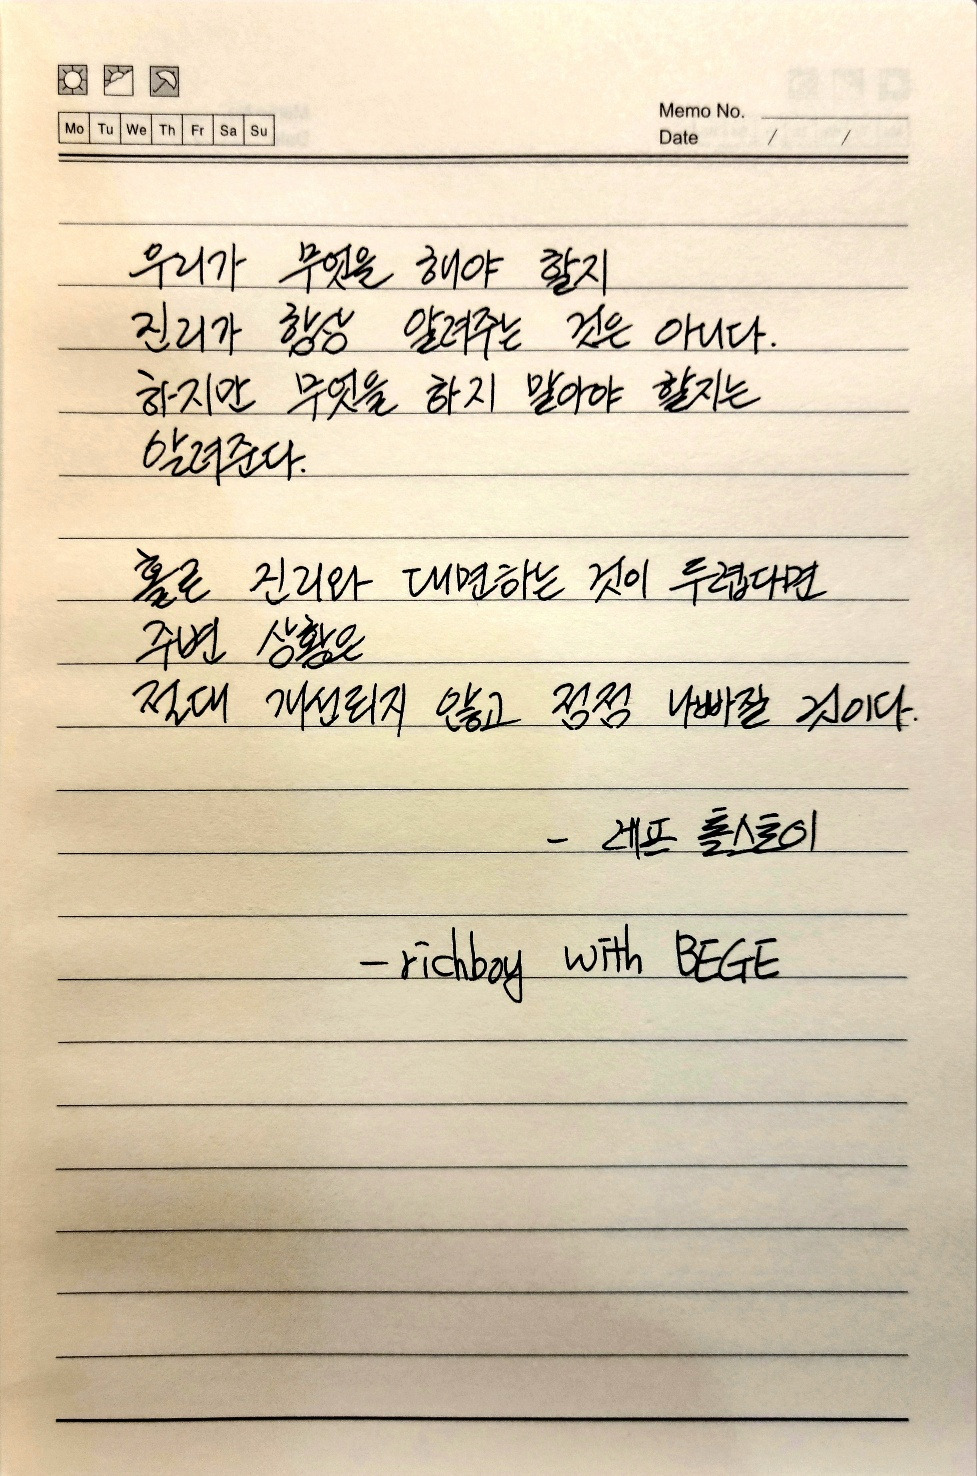 Memo No.
Mo Tu We Th Fr Sa Su
Date / /
우리가 무엇을 해야 할지
진리가 항상 알려주는 것은 아니다.
하지만 무엇을 하지 말아야 할지는
알려준다.
홀로 진리와 대면하는 것이 두렵다면
주변 상황은
절대 개선되지 않고 점점 나빠질 것이다.
- 레프 톨스토이
- richboy with BEGE